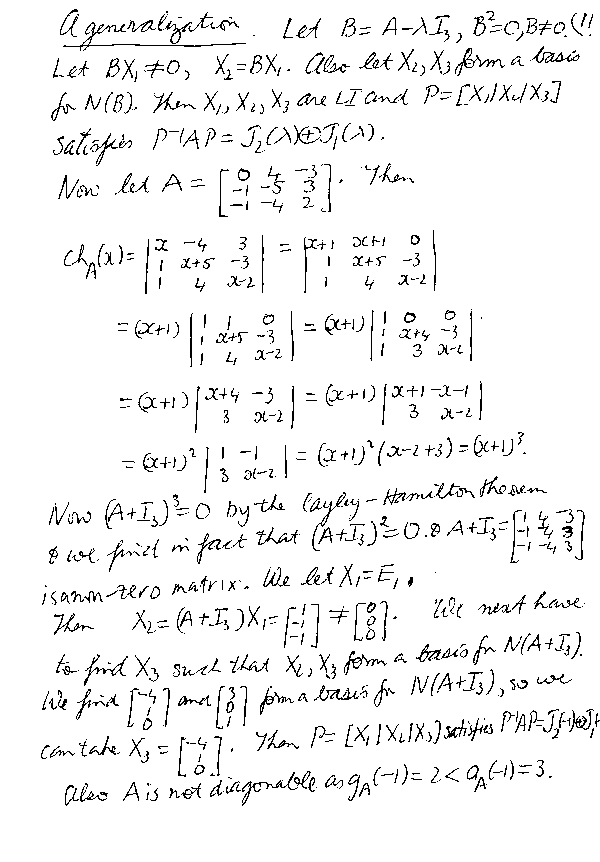 A generalization. Let B = A-λI₃, B²=0, B≠0. (!!
Let BX₁ ≠ 0, X₂=BX₁. Also let X₂, X₃ form a basis
for N(B). Then X₁, X₂, X₃ are LI and P=[X₁|X₂|X₃]
satisfies P⁻¹AP = J₂(λ)⊕J₁(λ).
Now let A = [0 4 -3; -1 -5 3; -1 -4 2]. Then
ch_A(x) = |x -4 3; 1 x+5 -3; 1 4 x-2| = |x+1 x+1 0; 1 x+5 -3; 1 4 x-2|
= (x+1) |1 1 0; 1 x+5 -3; 1 4 x-2| = (x+1) |1 0 0; 1 x+4 -3; 1 3 x-2|.
= (x+1) |x+4 -3; 3 x-2| = (x+1) |x+1 -x-1; 3 x-2|
= (x+1)² |1 -1; 3 x-2| = (x+1)²(x-2+3) = (x+1)³.
Now (A+I₃)³=0 by the Cayley-Hamilton theorem
& we find in fact that (A+I₃)²=0. & A+I₃=[1 4 -3; -1 -4 3; -1 -4 3]
is a non-zero matrix. We let X₁=E₁.
Then X₂=(A+I₃)X₁=[1; -1; -1] ≠ [0; 0; 0]. We next have
to find X₃ such that X₂, X₃ form a basis for N(A+I₃).
We find [-4; 1; 0] and [3; 0; 1] form a basis for N(A+I₃), so we
can take X₃ = [-4; 1; 0]. Then P = [X₁|X₂|X₃] satisfies P⁻¹AP=J₂(-1)⊕J₁
Also A is not diagonable as g_A(-1) = 2 < a_A(-1) = 3.